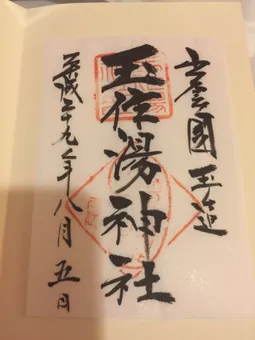 出雲國玉造
玉作湯神社
平成二十九年八月五日